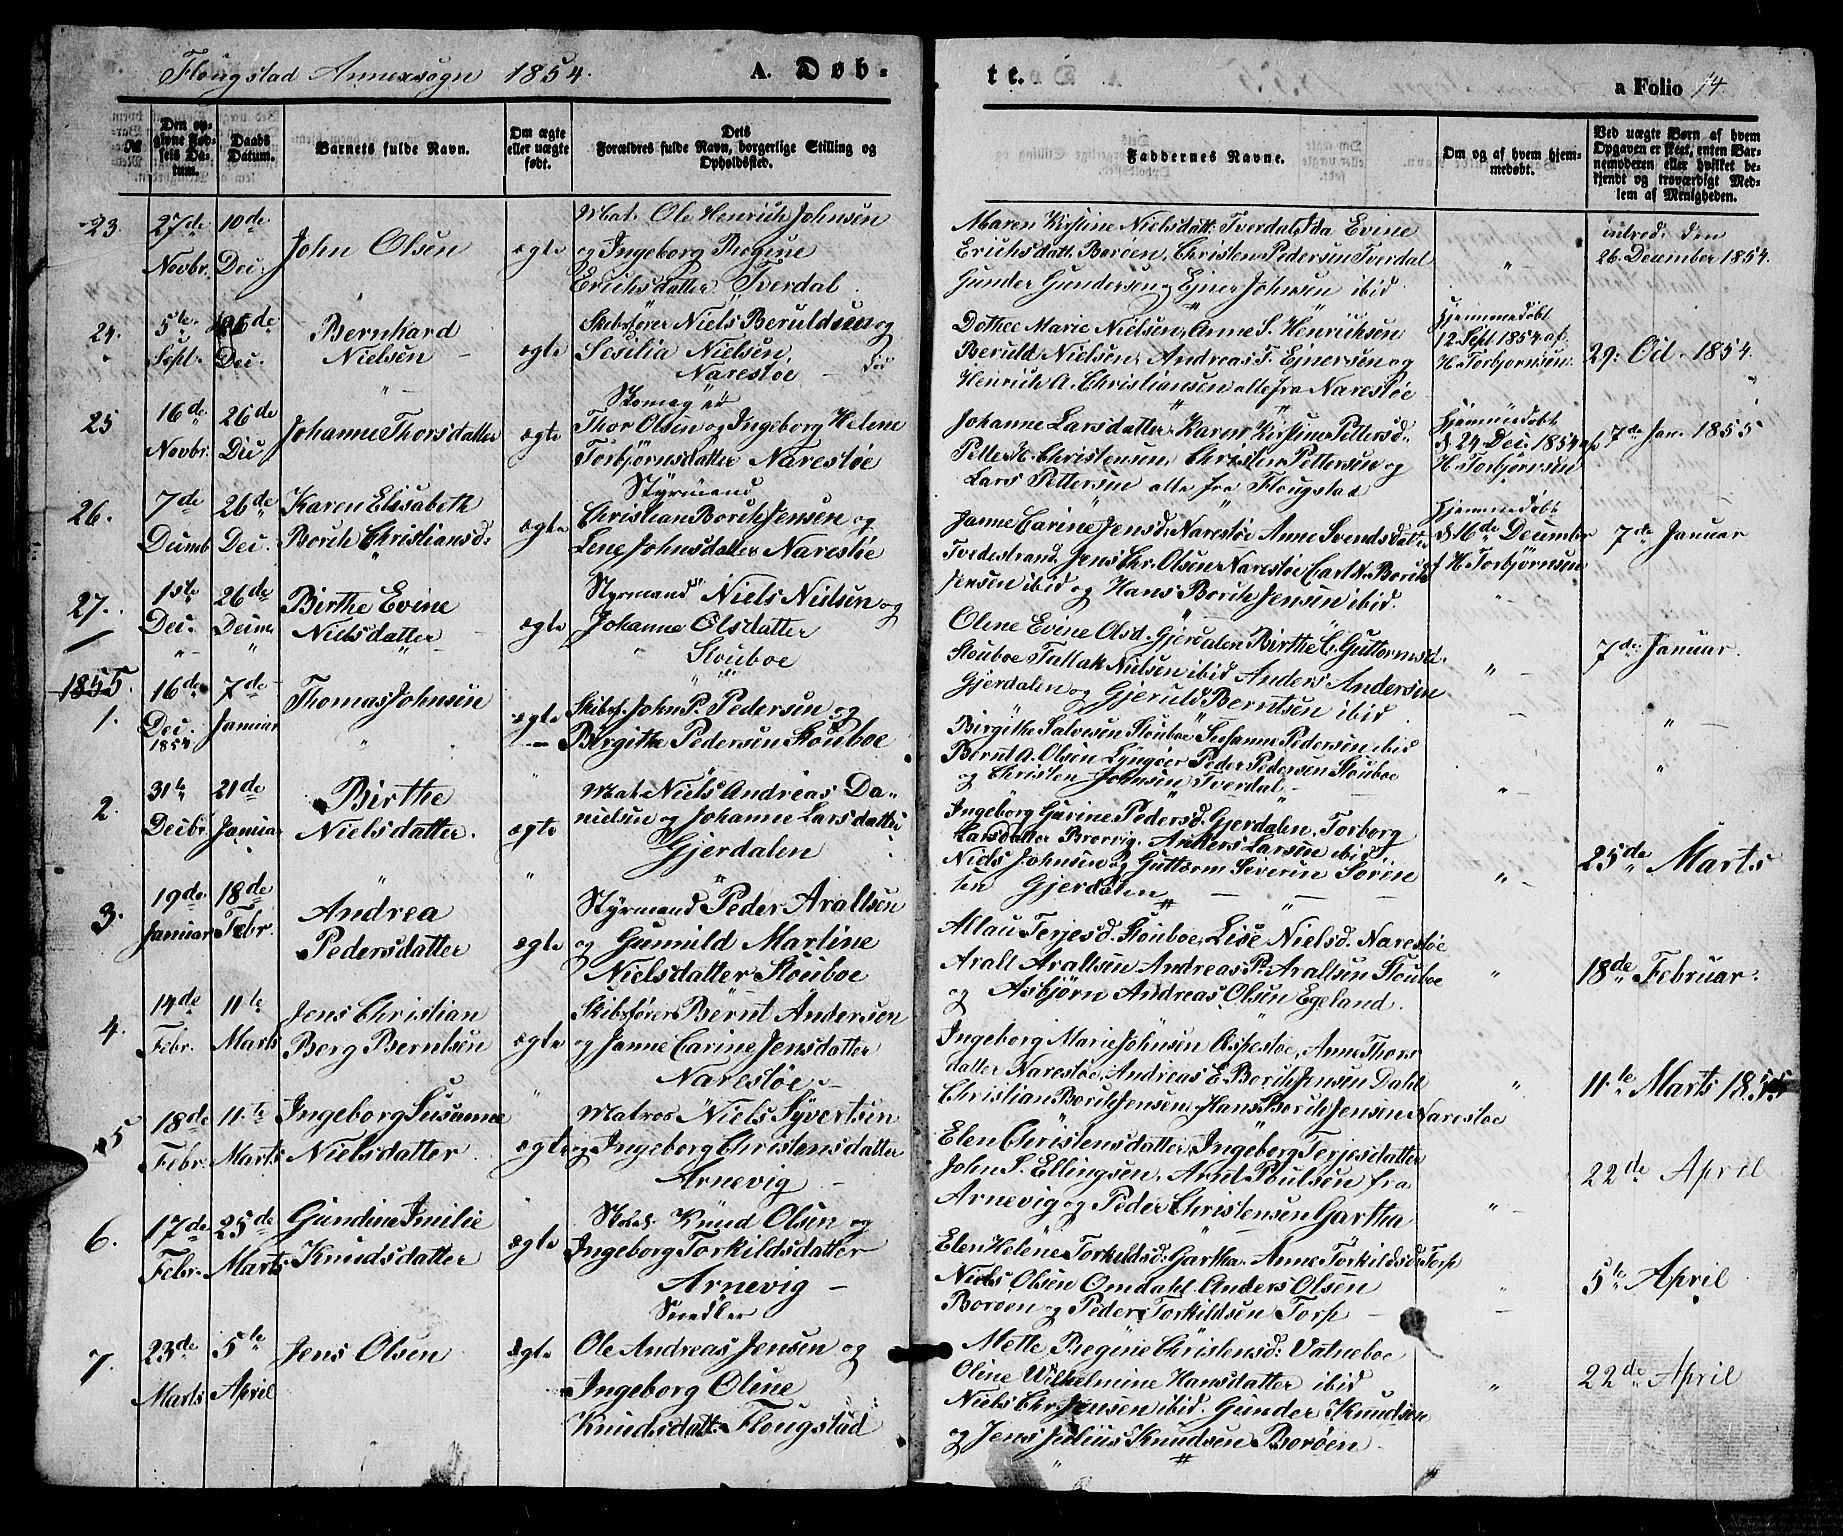 Flougstad Annexsogn 1854.
A. Døb-
te.
a Folio 14
No
Den opgivne Fødsels Datum.
Daabs Datum.
Barnets fulde Navn.
Om ægte eller uægte født.
Dets Forældres fulde Navn, borgerlige Stilling og Opholdssted.
Faddernes Navne.
Om og af hvem hjemmedøbt.
Ved uægte Børn af hvem Opgaven er skeet, enten Barnemoderen eller hvilket bekjendt og troværdigt Medlem af Menigheden.
23.
27de Novbr.
10de Dec.
John Olsen
ægte
Mat. Ole Henrich Johnsen
og Ingeborg Regine
Erichsdatter Tverdal.
Maren Kirstine Nielsdatt. Tverdal, Ida Evine
Erichsdatt. Borøen, Christen Pedersen Tverdal
Gunder Gundersen og Ejner Johnsen ibid
introd. den
26. December 1854.
24.
5te Sept.
26de Dec.
Bernhard
Nielsen
ægte
Skibsfører Niels Beruldsen og
Sesilia Nielsen,
Narestøe
Dothee Marie Nielsen, Anne S. Henriksen
Beruld Nielsen, Andreas T. Ejnersen og
Henrich A. Christiansen alle fra Narestøe
Hjemmedøbt
12 Sept 1854 af
H. Torbjørnsen
29. Oct. 1854.
25
16de Novbr.
26de Dec
Johanne Thorsdatter
ægte
Skomager
Thor Olsen og Ingeborg Helene
Torbjørnsdatter Narestøe
Johanne Larsdatter, Karen Kirstine Pettersd.
Petter H. Christensen, Christen Pettersen og
Lars Pettersen alle fra Flougstad
Hjemmedøbt
d. 24 Dec. 1854 af
H. Torbjørnsen
7de Jan. 1855
26.
7de Decmb
26de Dec.
Karen Elisabeth
Borch Christiansd.
ægte
Styrmand
Christian Borch Jensen og
Lene Johnsdatter Narestøe
Janne Carine Jensd. Narestøe Anne Svendsdatter
Tvedestrand, Jens Chr. Olsen Narestøe Carl N. Borch
Jensen ibid og Hans Borch Jensen ibid.
Hjemmedøbt
d. 16de December
af H. Torbjørnsen
7de Januar
27.
1ste Dec.
26de Decmr
Birthe Evine
Nielsdatter
ægte
Styrmand Niels Nielsen og
Johanne Olsdatter
Stouboe
Olene Evine Olsd. Gjerdalen Birthe C. Guttormsd.
Stouboe Tallak Nielsen ibid Anders Andersen
Gjerdalen og Gjeruld Berntsen ibid
7de Januar.
1855.
1.
16de Dec. 1854
7de Januar
Thomas Johnsen
ægte
Skibsf. John P. Pedersen og
Birgithe Pedersen Stouboe
Birgithe Salvesen Stouboe Susanne Pedersen ibid
Bernt A. Olsen Lyngøer Peder Pedersen Stouboe
og Christen Johnsen Tverdal
2.
31te Decbr.
21de Januar
Birthe
Nielsdatter.
ægte
Mat. Niels Andreas Da-
nielsen og Johanne Larsdatter
Gjerdalen
Ingeborg Gurine Pedersd. Gjerdalen, Torborg
Larsdatter Brevvig. Anders Larsen ibid,
Niels Johnsen og Guttorm Siverin Søren
sen Gjerdalen
25de Marts
3.
19de Januar
18de Febr.
Andrea
Pedersdatter
ægte
Styrmand Peder Araltsen
og Gunnild Martine
Nielsdatter Stouboe
Allau Terjesd. Stouboe, Lise Nielsd. Narestøe
Aralt Araltsen Andreas P. Araltsen Stouboe
og Asbjørn Andreas Olsen Egeland.
18de Februar.
4.
14de Febr.
11te Marts
Jens Christian
Berg Berntsen
ægte
Skibsfører Bernt Andersen
og Janne Carine Jensdatter
Narestøe
Ingeborg Marie Johnsen Askestøe, Anne Thors
datter Narestøe. Andreas E. Borch Jensen Dahl
Christian Borch Jensen, Hans Borch Jensen Narestøe
11te Marts 1855
5
18de Febr.
11te Marts
Ingeborg Susanne
Nielsdatter
ægte
Matros Niels Syvertsen
og Ingeborg Christensdatter
Arnevig
Elen Christensdatter, Ingeborg Terjesdatter
John S. Ellingsen, Arnt Poulsen fra
Arnevig og Peder Christensen Gartha
22de April
6.
17de Febr.
25de Marts
Gundine Imilie
Knudsdatter
ægte
Knud Olsen og
Ingeborg Torkildsdatter
Arnevig
Elen Helene Torkildsd. Gartha. Anne Torkildsd. Torp
Niels Olsen Omdahl. Anders Olsen
Borøen og Peder Torkildsen Torp
5te April
7.
23de Marts
5te April
Jens Olsen
ægte
Snedker
Ole Andreas Jensen og
Ingeborg Oline
Knudsdatt. Flougstad
Mette Regine Christensd. Vatneboe
Oline Wilhelmine Hansdatter ibid
Niels Chr Jensen ibid. Gunder Knudsen
og Jens Julius Knudsen Borøen
22de April